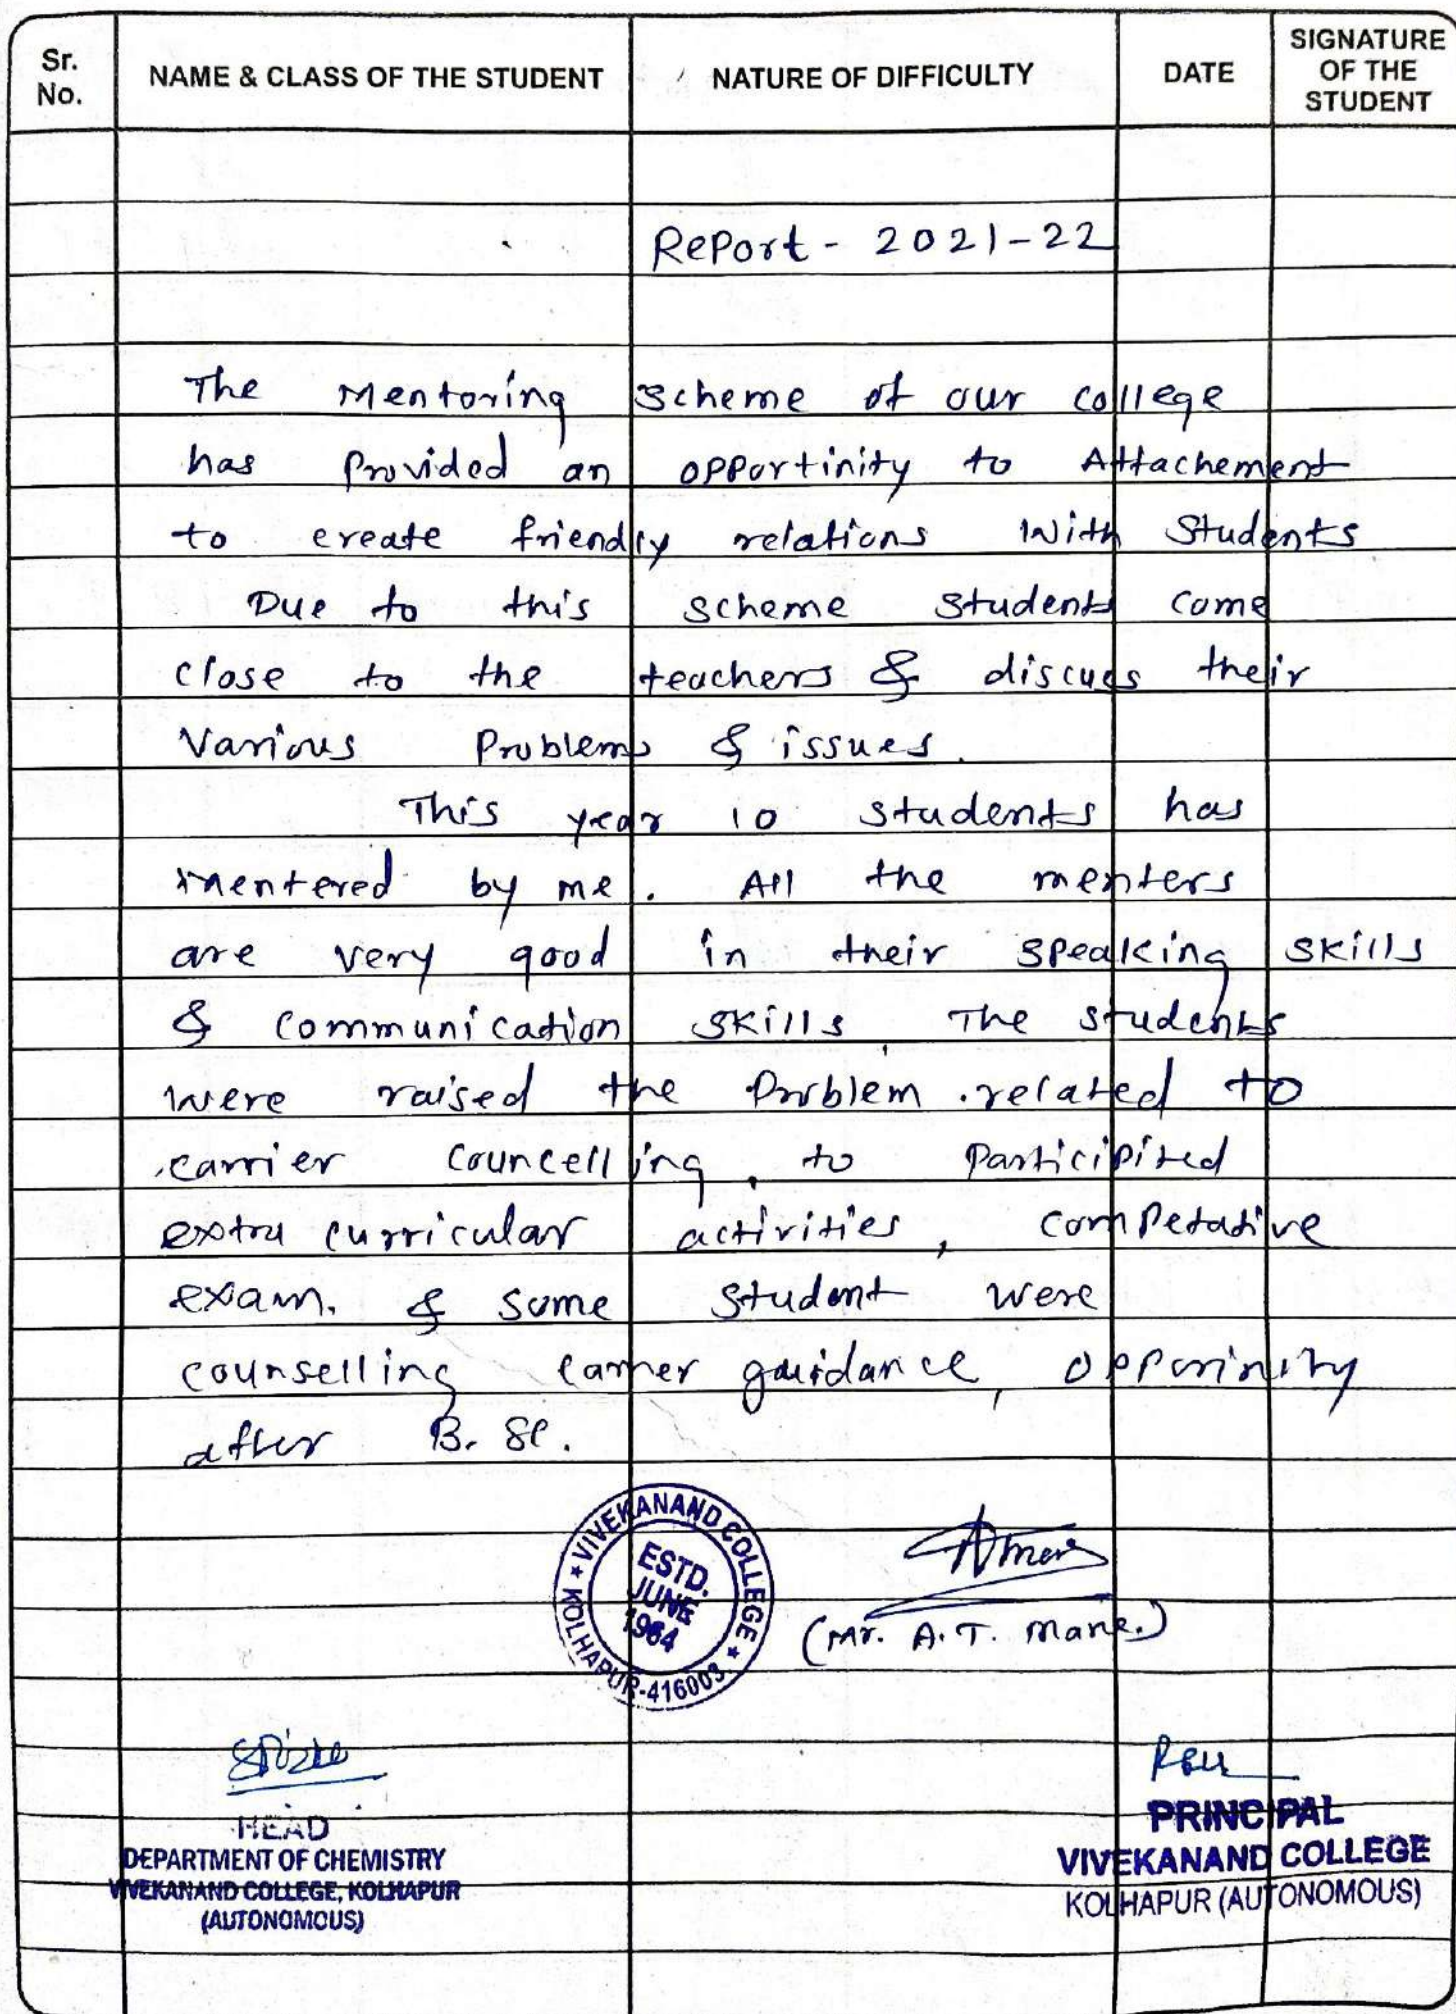 Sr. No.
NAME & CLASS OF THE STUDENT
NATURE OF DIFFICULTY
DATE
SIGNATURE OF THE STUDENT
Report - 2021-22
The Mentoring Scheme of our college
has Provided an opportinity to Attachement
to create friendly relations with Students
Due to this scheme students come
close to the teachers & discuss their
Various Problems & issues.
This year 10 students has
mentered by me. All the menters
are very good in their speaking skills
& communication skills. The students
were raised the Problem related to
carrier councelling, to Participited
extra curricular activities, competative
exam. & some student were
counselling carrier guidance, opporinity
after B. Sc.
VIVEKANAND COLLEGE
KOLHAPUR-416003
ESTD.
JUNE
1964
(Mr. A. T. Mane.)
HEAD
DEPARTMENT OF CHEMISTRY
VIVEKANAND COLLEGE, KOLHAPUR
(AUTONOMOUS)
PRINCIPAL
VIVEKANAND COLLEGE
KOLHAPUR (AUTONOMOUS)